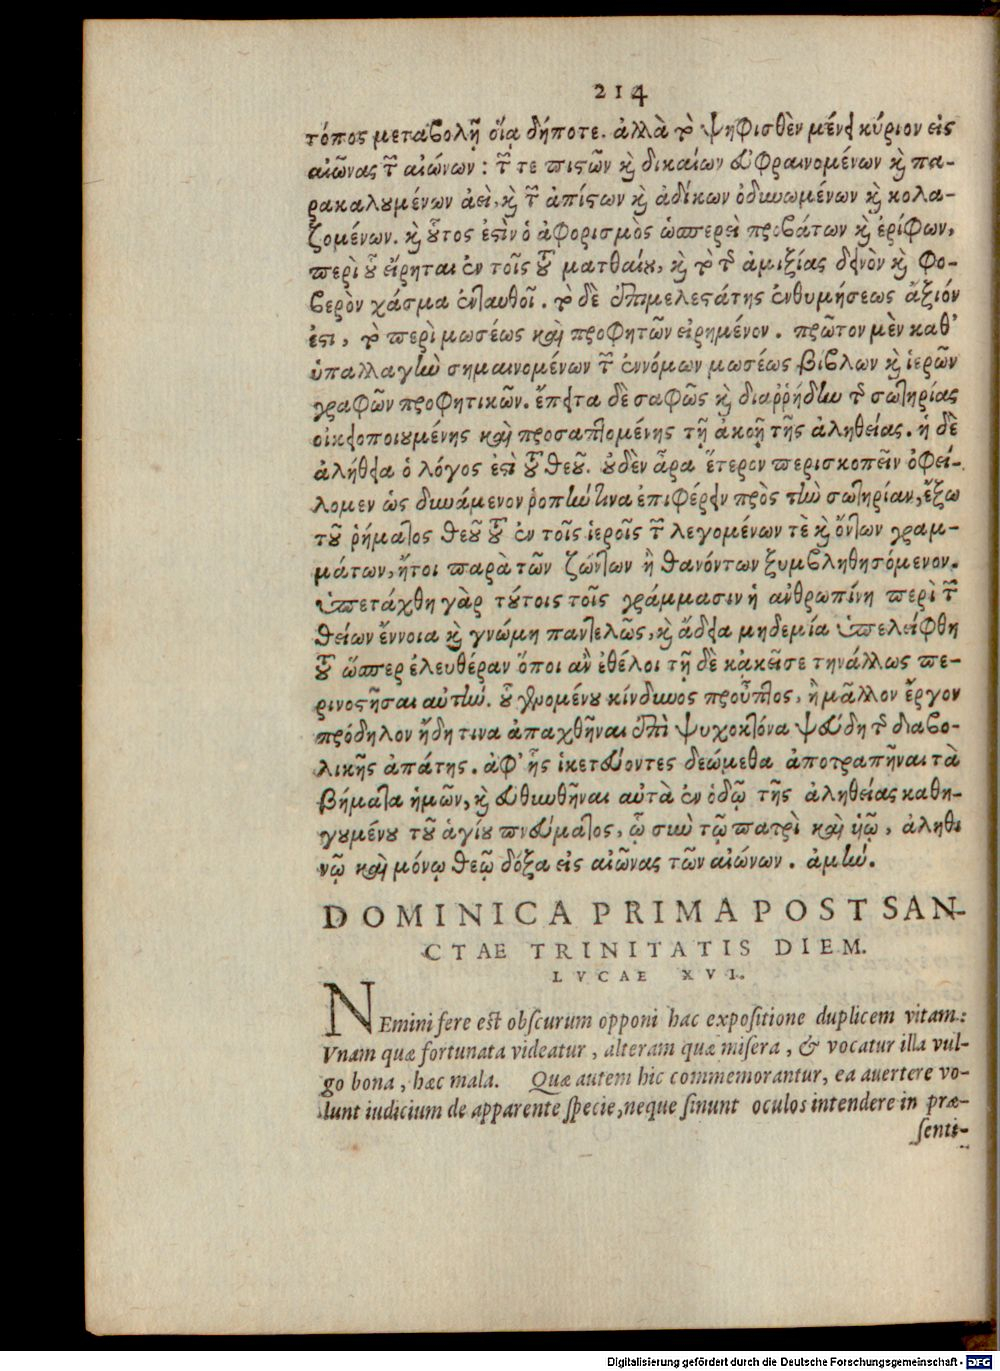 214
τόπος μεταβολῇ οἵᾳ δήποτε. ἀλλὰ τὸ ψηφισθὲν μένει κύριον εἰς
αἰῶνας τῶν αἰώνων: τῶν τε πιστῶν καὶ δικαίων εὐφραινομένων καὶ πα-
ρακαλουμένων ἀεὶ, καὶ τῶν ἀπίστων καὶ ἀδίκων ὀδυνωμένων καὶ κολα-
ζομένων. καὶ οὗτος ἐστὶν ὁ ἀφορισμὸς ὡσπερεὶ προβάτων καὶ ἐρίφων,
περὶ οὗ εἴρηται ἐν τοῖς τοῦ ματθαίου, καὶ τὸ τῆς ἀμιξίας δεινὸν καὶ φο-
βερὸν χάσμα ἐνταυθοῖ. τὸ δὲ ἐπιμελεστάτης ἐνθυμήσεως ἄξιόν
ἐστι, τὸ περὶ μωσέως καὶ προφητῶν εἰρημένον. πρῶτον μὲν καθ’
ὑπαλλαγὴν σημαινομένων τῶν ἐννόμων μωσέως βιβλων καὶ ἱερῶν
γραφῶν προφητικῶν. ἔπειτα δὲ σαφῶς καὶ διαῤῥήδην τῆς σωτηρίας
οἰκειοποιουμένης καὶ προσαπτομένης τῇ ἀκοῇ τῆς ἀληθείας. ἡ δὲ
ἀλήθεια ὁ λόγος ἐστὶ τοῦ θεοῦ. οὐδὲν ἄρα ἕτερον περισκοπεῖν ὀφεί-
λομεν ὡς δυνάμενον ῥοπὴν τινα ἐπιφέρειν πρὸς τὴν σωτηρίαν, ἔξω
τοῦ ῥήματος θεοῦ τοῦ ἐν τοῖς ἱεροῖς τῶν λεγομένων τὲ καὶ ὄντων γραμ-
μάτων, ἤτοι παρὰ τῶν ζώντων ἢ θανόντων ξυμβληθησόμενον.
ὑπετάχθη γὰρ τούτοις τοῖς γράμμασιν ἡ ἀνθρωπίνη περὶ τῶν
θείων ἔννοια καὶ γνώμη παντελῶς, καὶ ἄδεια μηδεμία ὑπελείφθη
τοῦ ὥσπερ ἐλευθέραν ὅποι ἂν ἐθέλοι τῇ δὲ κἀκεῖσε τηνάλλως πε-
ρινοστῆσαι αὐτὴν. οὗ γινομένου κίνδυνος προὖπτος, ἢ μᾶλλον ἔργον
πρόδηλον ἤδη τινα ἀπαχθῆναι ἐπὶ ψυχοκτόνα ψεύδη τῆς διαβο-
λικῆς ἀπάτης. ἀφ’ ἧς ἱκετεύοντες δεώμεθα ἀποτραπῆναι τὰ
βήματα ἡμῶν, καὶ εὐθυνθῆναι αὐτὰ ἐν ὁδῷ τῆς ἀληθείας καθη-
γουμένου τοῦ ἁγίου πνεύματος, ᾧ σὺν τῷ πατρὶ καὶ ὑῷ, ἀληθι
νῷ καὶ μόνῳ θεῷ δόξα εἰς αἰῶνας τῶν αἰώνων. ἀμὴν.
DOMINICA PRIMA POST SAN-
CTAE TRINITATIS DIEM.
LVCAE XVI.
NEmini fere est obscurum opponi hac expositione duplicem vitam:
Vnam quæ fortunata videatur, alteram quæ misera, & vocatur illa vul-
go bona, hæc mala. Quæ autem hic commemorantur, ea auertere vo-
lunt iudicium de apparente specie, neque sinunt oculos intendere in præ-
senti-
Digitalisierung gefördert durch die Deutsche Forschungsgemeinschaft - DFG